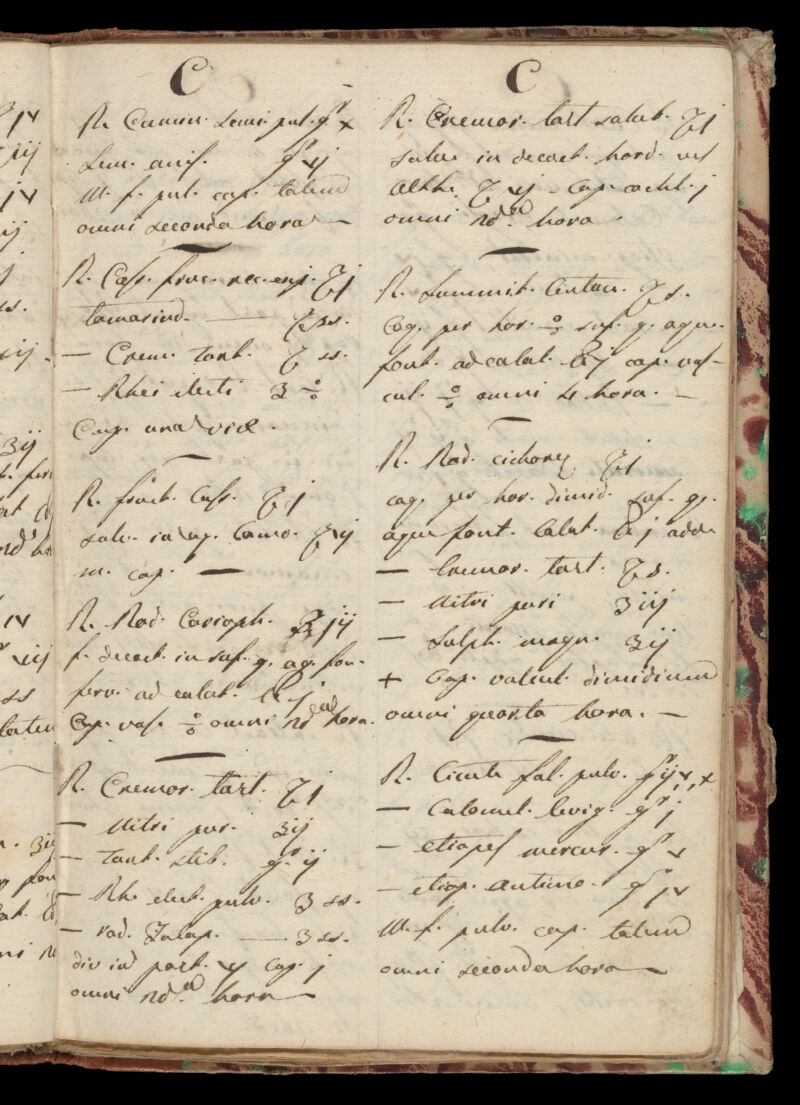 C
R. Cumin. Semi pul. gr x
Sem. anis. gr vj
M. f. pul. cap. talem
omni seconda hora —
R. Cass. fruc. recensj. ℥j
tamarind. — ℥ss.
— Crem. Tart. ℥ ss.
— Rhei electi ʒ ÷
Cap. una vice.
R. fruct. Cass. ℥j
solv. in aq. Camo. ℥vj
m. cap. —
R. Rad. Carioph. ℥jij
f. decoct. in suf. q. aq. fon.
ferv. ad calat. ℔j
Cap. vas. ÷ omni 2da hora.
R. Cremor. tart. ℥j
— Nitri pur. ʒij
— Tart. stib. gr ij
— Rh. elect. pulv. ʒ ss.
— rad. Jalap. — ʒ ss.
div in part. vj cap. j
omni 2da hora —
C
R. Cremor. tart solub. ℥j
solve in decoct. hord. vel
Alth. ℥vj - cap. cochl. j
omni 2da hora -
R. Summit. Centau. ℥s.
Coq. per hor. ÷ suf. q. aque.
font. ad calat. ℔j cap. vas-
cul. ÷ omni 4 hora. -
R. Rad. cichorej ℥j
coq. per hor. dimid. suf. q.
aque font. Calat. ℔j adde
— Cremor. tart. ℥s.
— Nitri puri ʒiij
— Sulph. magn. ʒij
+ Cap. valent. dimidium
omni quarta hora. -
R. Cicute fol. pulv. gr ij,v,x
— Calomel. levig. gr j
— etiopes mercur. gr v
— etiop. antimo. gr jv
M. f. pulv. cap. talem
omni seconda hora —